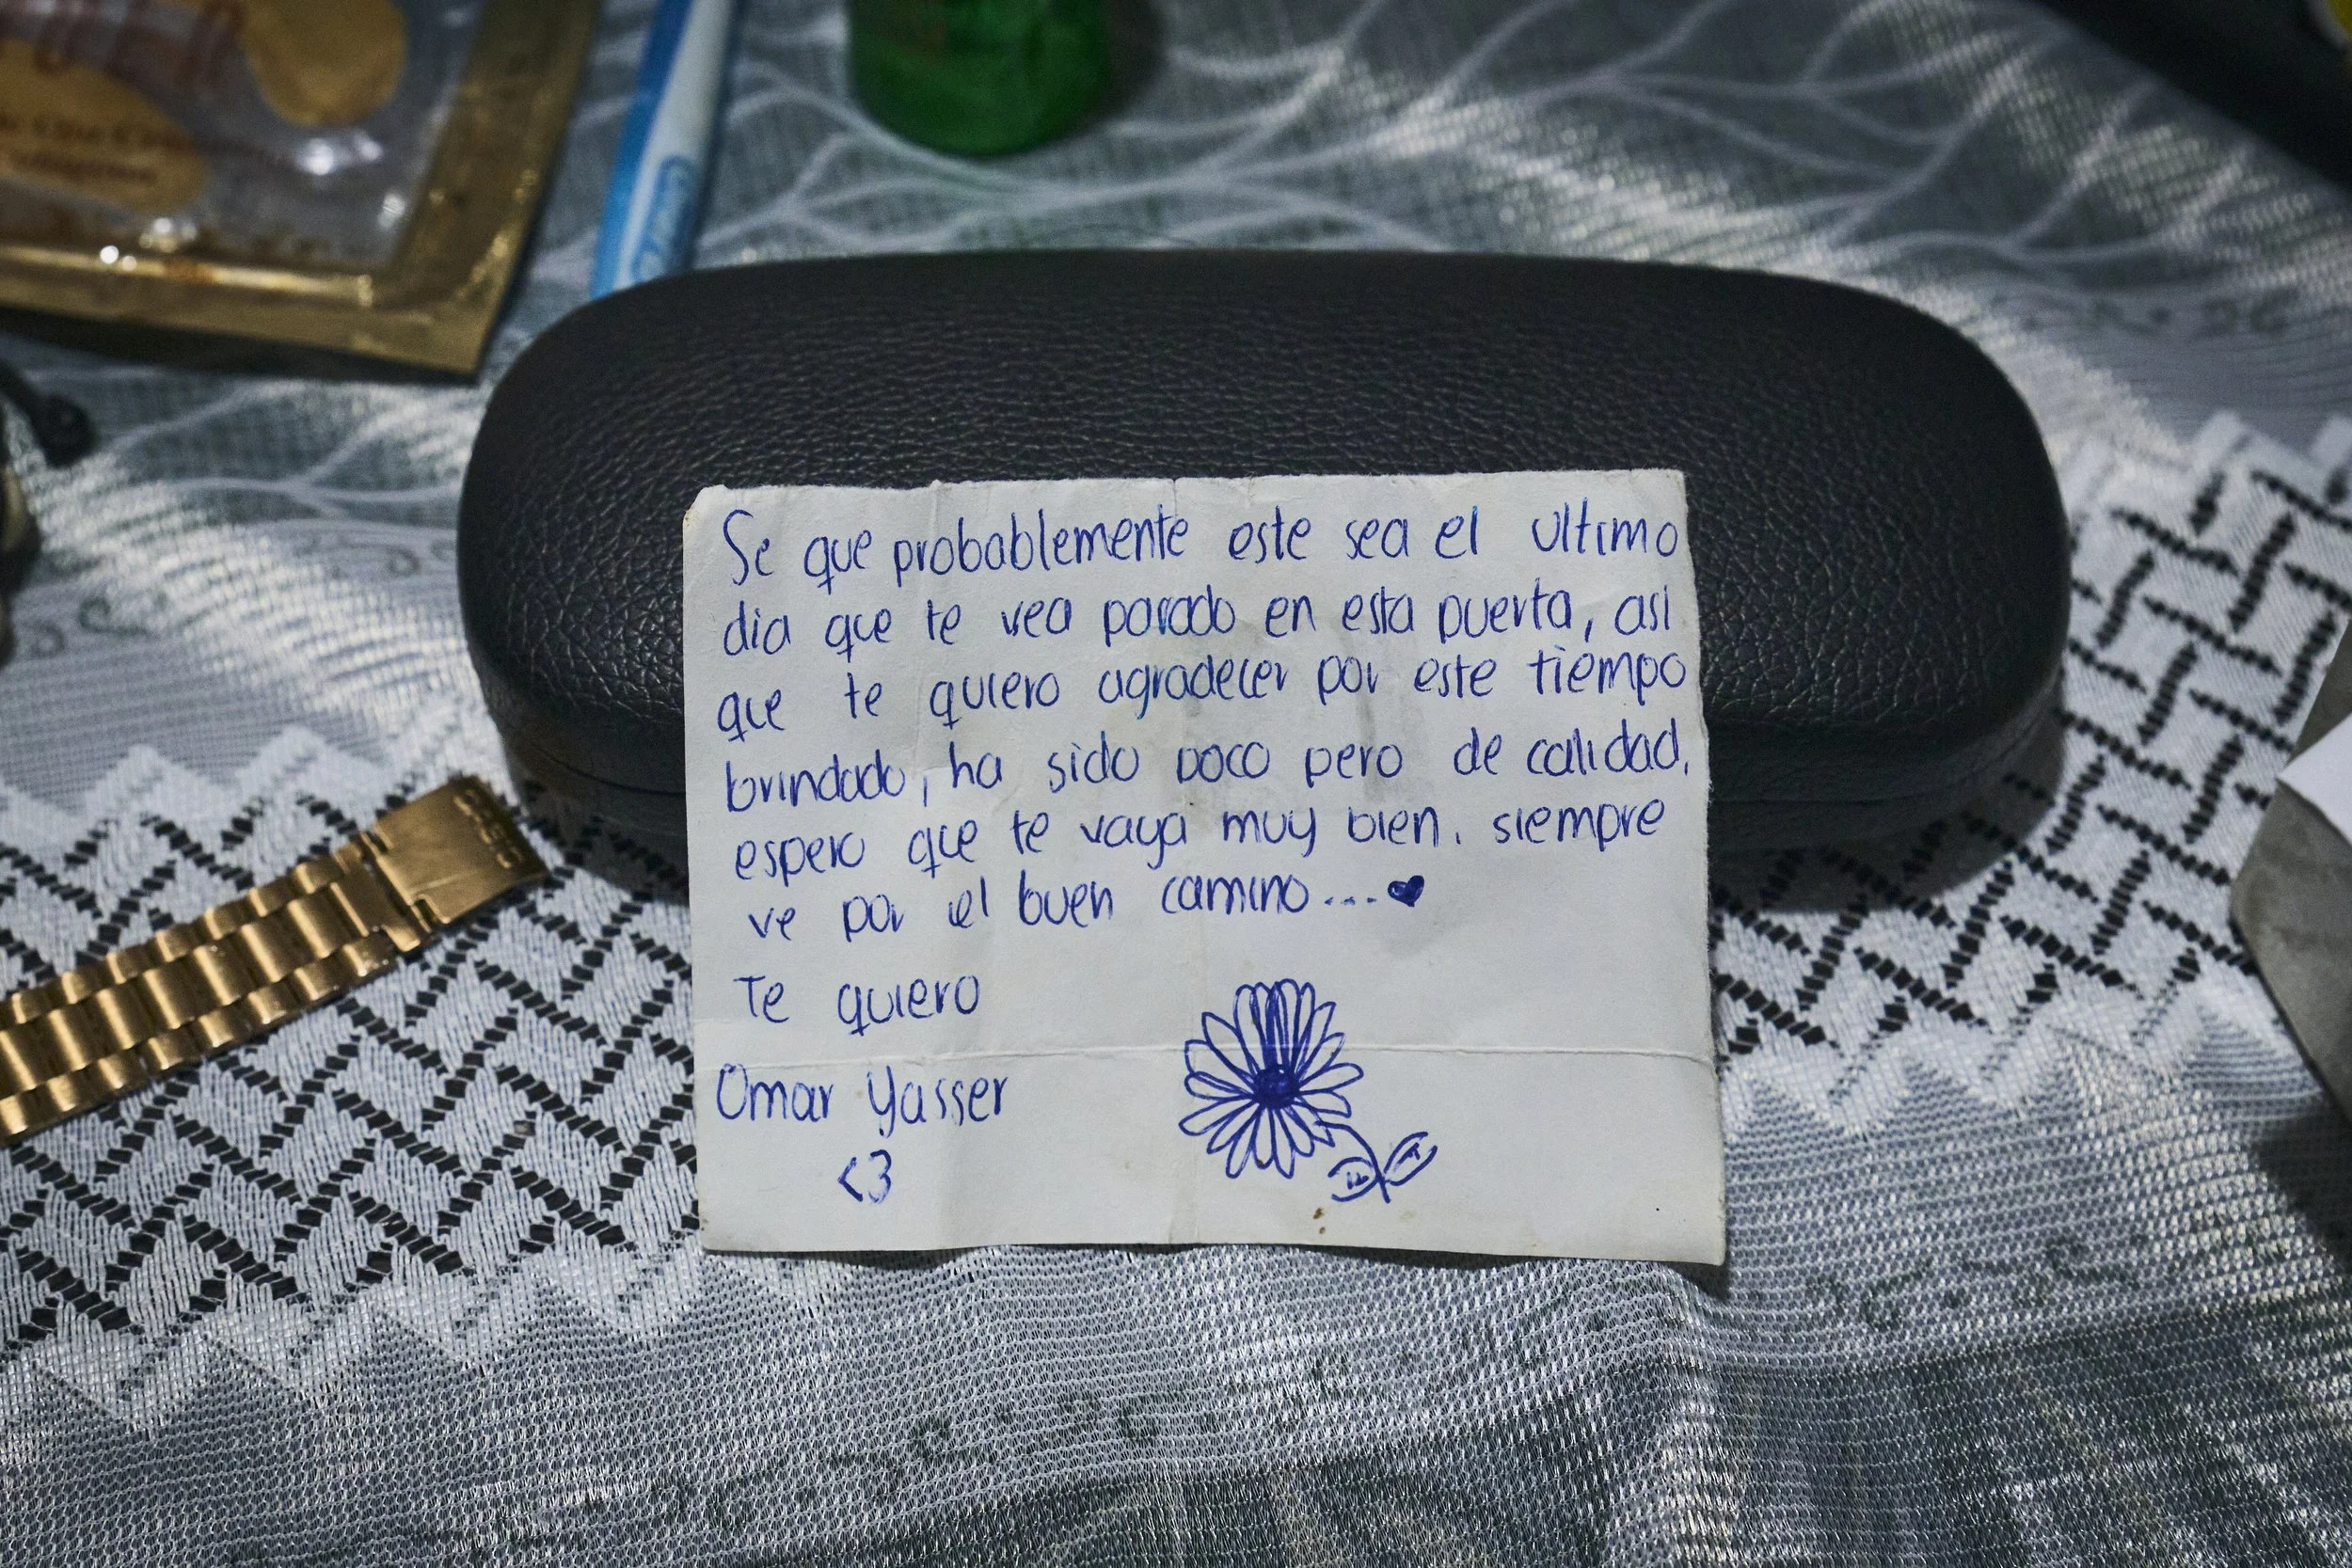 Se que probablemente este sea el ultimo
dia que te vea parado en esta puerta, asi
que te quiero agradecer por este tiempo
brindado, ha sido poco pero de calidad,
espero que te vaya muy bien. siempre
ve por el buen camino...♥
Te quiero
Omar Yasser
<3
CASIO